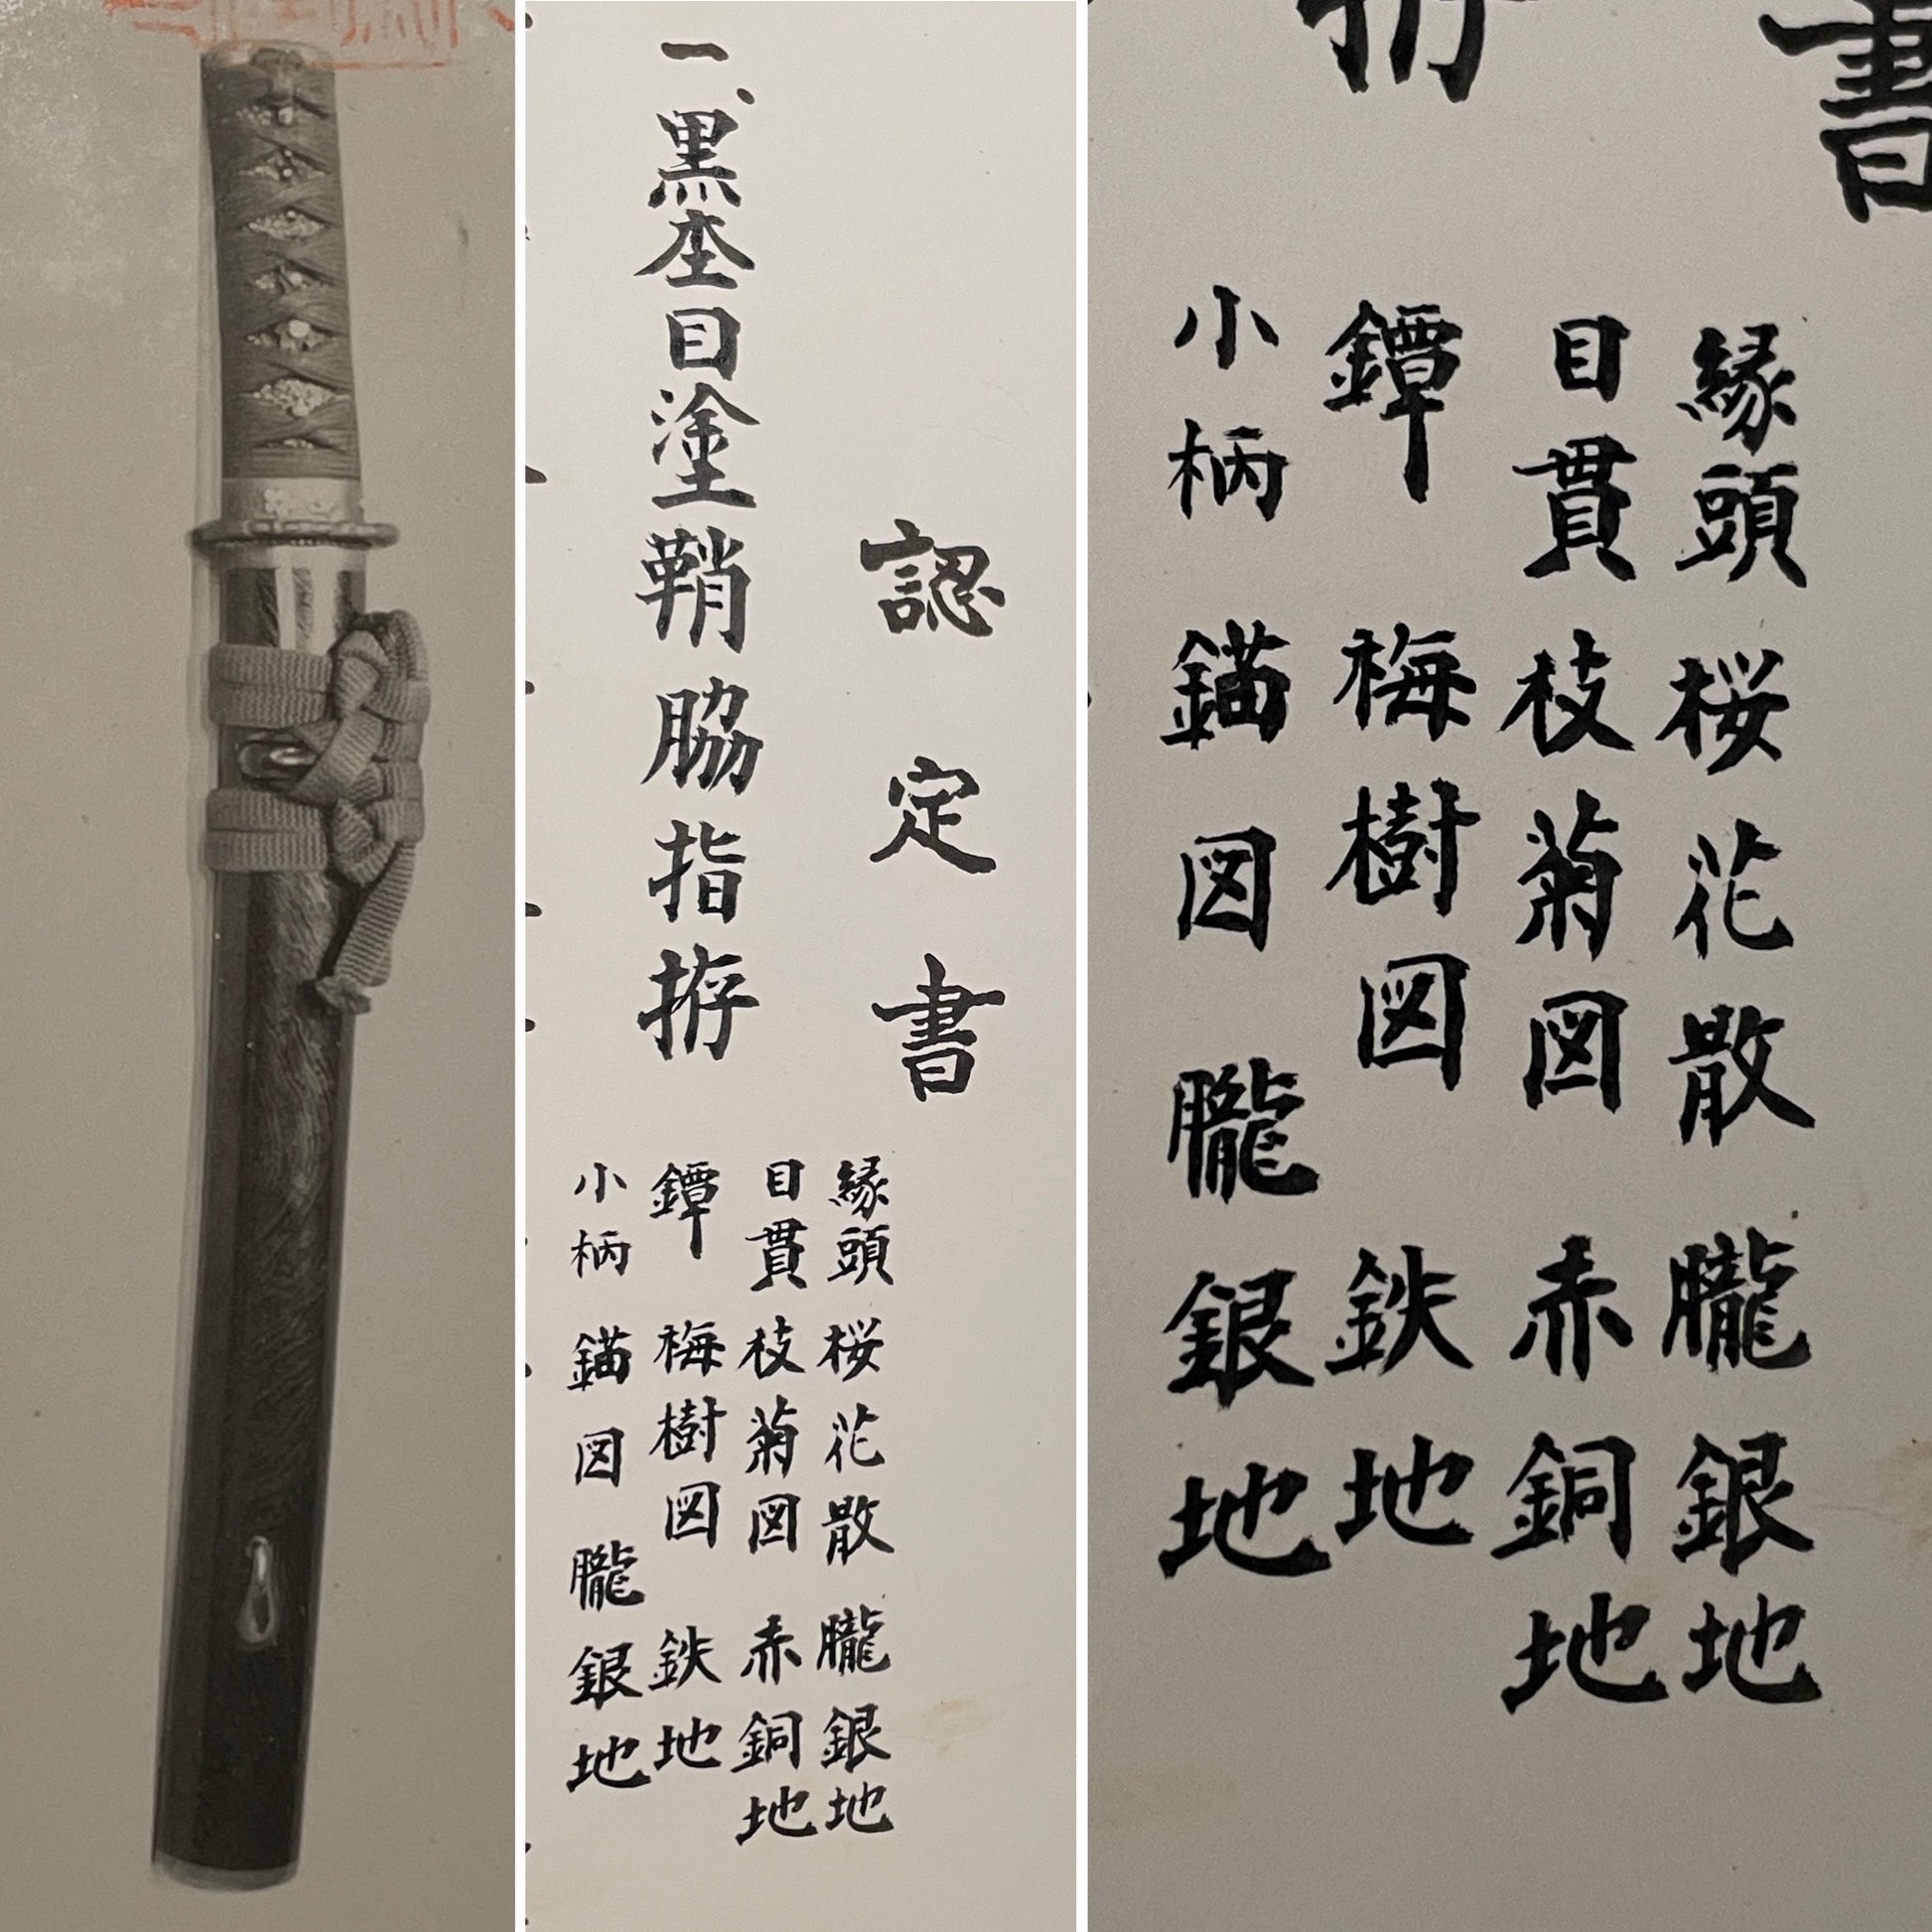 認定書
一、黒杢目塗鞘脇指拵
縁頭 桜花散 朧銀地
目貫 枝菊図 赤銅地
鐔 梅樹図 鉄地
小柄 錨図 朧銀地
書
拵
縁頭 桜花散 朧銀地
目貫 枝菊図 赤銅地
鐔 梅樹図 鉄地
小柄 錨図 朧銀地